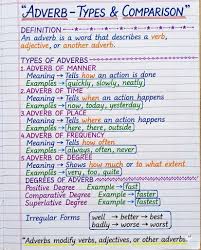 "ADVERB – TYPES & COMPARISON"
DEFINITION
An adverb is a word that describes a verb,
adjective, or another adverb.
TYPES OF ADVERBS
1. ADVERB OF MANNER
Meaning → Tells how an action is done
Examples → quickly, slowly, neatly
2. ADVERB OF TIME
Meaning → Tells when an action happens
Examples → now, today, yesterday
3. ADVERB OF PLACE
Meaning → Tells where an action happens
Examples → here, there, outside
4. ADVERB OF FREQUENCY
Meaning → Tells how often
Examples → always, often, never
5. ADVERB OF DEGREE
Meaning → Shows how much or to what extent
Examples → very, too, quite
DEGREES OF ADVERB
Positive Degree Example → fast
Comparative Degree Example → faster
Superlative Degree Example → fastest
Irregular Forms well → better → best
badly → worse → worst
"Adverbs modify verbs, adjectives, or other adverbs."